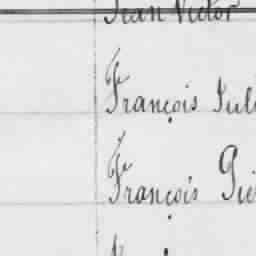 Jean Victor
François Jul
François Pie